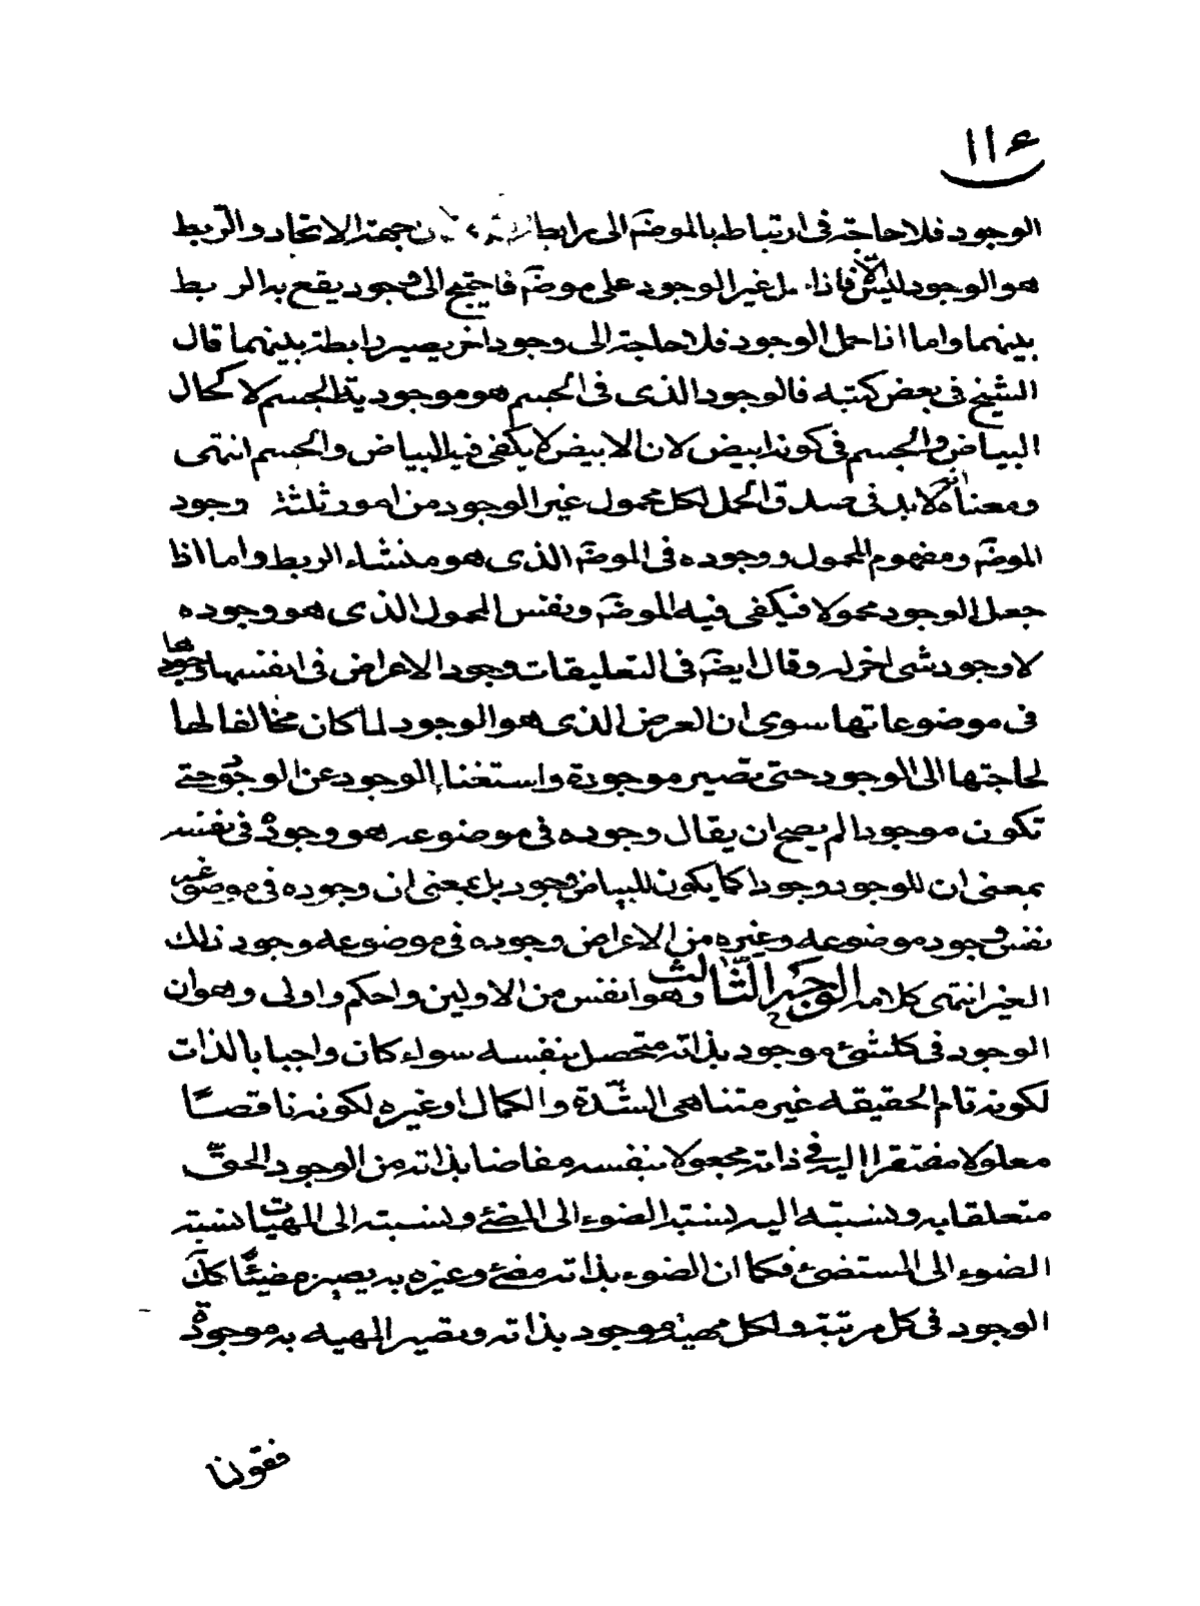 ١١٤
الوجود فلا حاجة فى ارتباطه بالموضَع الى رابطة جهة الاتحاد والربط
هو الوجود ليس الّا فاذا حمل غير الوجود على موضَع فاحتيج الى وجود يقع به الربط
بينهما واما اذا حمل الوجود فلا حاجة الى وجود اخر يصير رابطة بينهما قال
الشيخ فى بعض كتبه فالوجود الذى فى الجسم هو موجودية الجسم لا كحال
البياض والجسم فى كونه ابيض لان الابيض لا يكفى فيه البياض والجسم انتهى
ومعناه انّه لا بد فى صدق الحمل لكل محمول غير الوجود من امور ثلثة وجود
الموضَع ومفهوم المحمول ووجوده فى الموضَع الذى هو منشاء الربط واما اذا
جعل الوجود محمولا فيكفى فيه الموضَع ونفس المحمول الذى هو وجوده
لا وجود شى اخر له وقال ايضَه فى التعليقات وجود الاعراض فى انفسها وجودها
فى موضوعاتها سوى ان العرض الذى هو الوجود لما كان مخالفا لها
لحاجتها الى الوجود حتى تصير موجودة واستغناء الوجود عن الوجود حتى
تكون موجودا لم يصح ان يقال وجوده فى موضوعه هو وجوده فى نفسه
بمعنى ان للوجود وجودا كما يكون للبياض وجود بل بمعنى ان وجوده فى موضوعه
نفس وجود موضوعه وغيره من الاعراض وجوده فى موضوعه وجود ذلك
الغير انتهى كلامه الوجه الثّالث وهو انفس من الاولين واحكم واولى وهو ان
الوجود فى كل شئ موجود بذاته متحصل بنفسه سواء كان واجبا بالذات
لكونه تام الحقيقه غير متناهى الشدّة والكمال او غيره لكونه ناقصًا
معلولا مفتقرا اليه فى ذاته مجعولا بنفسه مفاضا بذاته من الوجود الحقّ
متعلقا به ونسبته اليه نسبة الضوء الى المضئ ونسبته الى المهيات نسبة
الضوء الى المستضئ فكما ان الضوء بذاته مضئ وغيره به يصير مضيئًا كك
الوجود فى كل مرتبة ولكل مهية موجود بذاته وتصير المهيه به موجودة
فقولنا